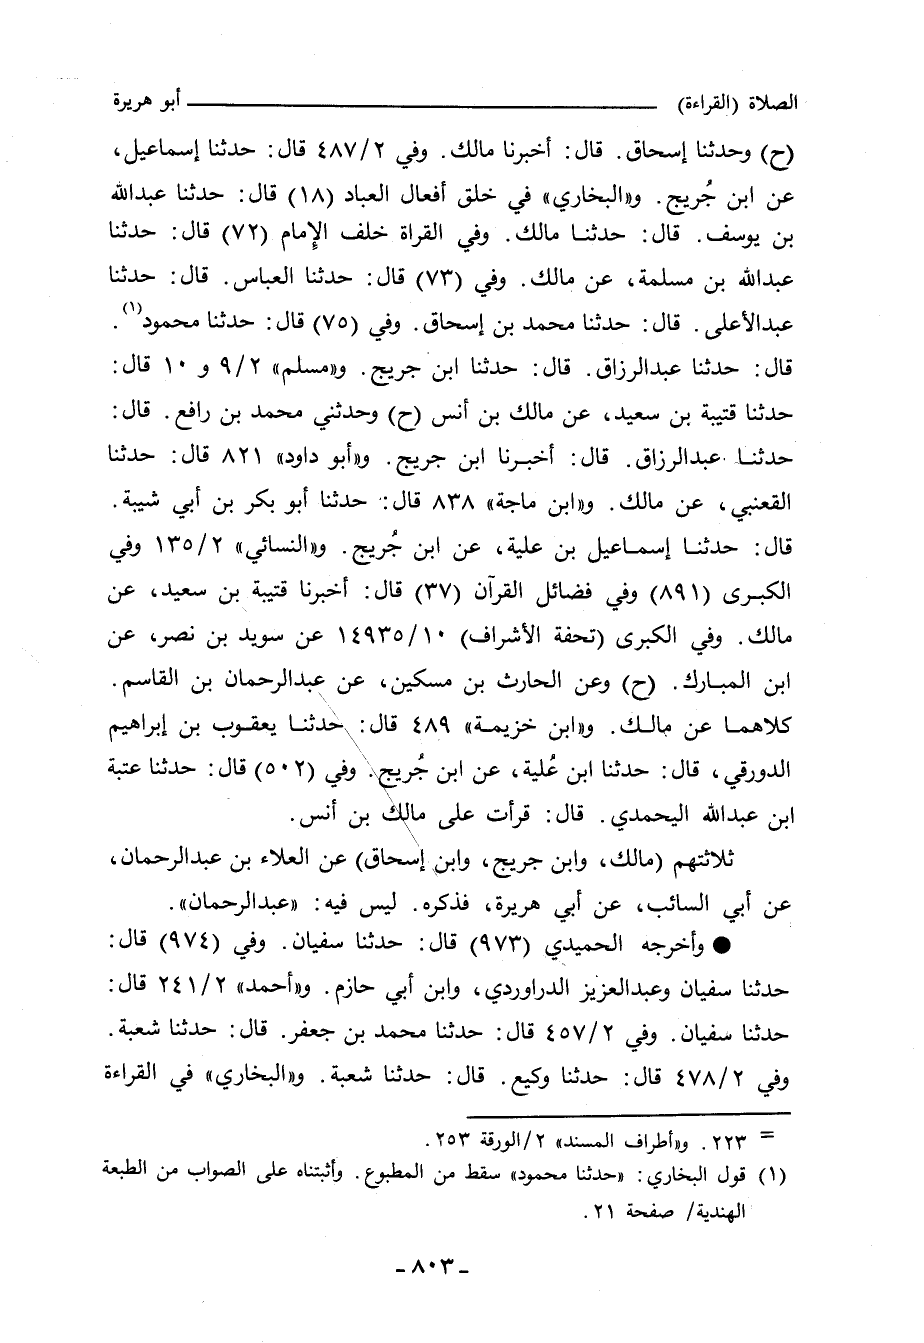 الصلاة (القراءة) ــــــ أبو هريرة
(ح) وحدثنا إسحاق. قال: أخبرنا مالك. وفي ٤٨٧/٢ قال: حدثنا إسماعيل،
عن ابن جُريج. و«البخاري» في خلق أفعال العباد (١٨) قال: حدثنا عبدالله
بن يوسف. قال: حدثنا مالك. وفي القراة خلف الإمام (٧٢) قال: حدثنا
عبدالله بن مسلمة، عن مالك. وفي (٧٣) قال: حدثنا العباس. قال: حدثنا
عبدالأعلى. قال: حدثنا محمد بن إسحاق. وفي (٧٥) قال: حدثنا محمود(١).
قال: حدثنا عبدالرزاق. قال: حدثنا ابن جريج. و«مسلم» ٩/٢ و ١٠ قال:
حدثنا قتيبة بن سعيد، عن مالك بن أنس (ح) وحدثني محمد بن رافع. قال:
حدثنا عبدالرزاق. قال: أخبرنا ابن جريج. و«أبو داود» ٨٢١ قال: حدثنا
القعنبي، عن مالك. و«ابن ماجة» ٨٣٨ قال: حدثنا أبو بكر بن أبي شيبة.
قال: حدثنا إسماعيل بن علية، عن ابن جُريج. و«النسائي» ١٣٥/٢ وفي
الكبرى (٨٩١) وفي فضائل القرآن (٣٧) قال: أخبرنا قتيبة بن سعيد، عن
مالك. وفي الكبرى (تحفة الأشراف) ١٤٩٣٥/١٠ عن سويد بن نصر، عن
ابن المبارك. (ح) وعن الحارث بن مسكين، عن عبدالرحمان بن القاسم.
كلاهما عن مالك. و«ابن خزيمة» ٤٨٩ قال: حدثنا يعقوب بن إبراهيم
الدورقي، قال: حدثنا ابن عُلية، عن ابن جُريج. وفي (٥٠٢) قال: حدثنا عتبة
ابن عبدالله اليحمدي. قال: قرأت على مالك بن أنس.
ثلاثتهم (مالك، وابن جريج، وابن إسحاق) عن العلاء بن عبدالرحمان،
عن أبي السائب، عن أبي هريرة، فذكره. ليس فيه: «عبدالرحمان».
● وأخرجه الحميدي (٩٧٣) قال: حدثنا سفيان. وفي (٩٧٤) قال:
حدثنا سفيان وعبدالعزيز الدراوردي، وابن أبي حازم. و«أحمد» ٢٤١/٢ قال:
حدثنا سفيان. وفي ٤٥٧/٢ قال: حدثنا محمد بن جعفر. قال: حدثنا شعبة.
وفي ٤٧٨/٢ قال: حدثنا وكيع. قال: حدثنا شعبة. و«البخاري» في القراءة
= ٢٢٣. و«أطراف المسند» ٢/الورقة ٢٥٣.
(١) قول البخاري: «حدثنا محمود» سقط من المطبوع. وأثبتناه على الصواب من الطبعة
الهندية/ صفحة ٢١.
- ٨٠٣ -